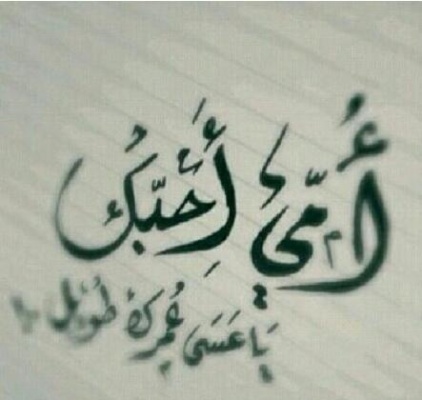 أُمّي أُحبّكُ
يَا عَسَى عُمرك طُويل